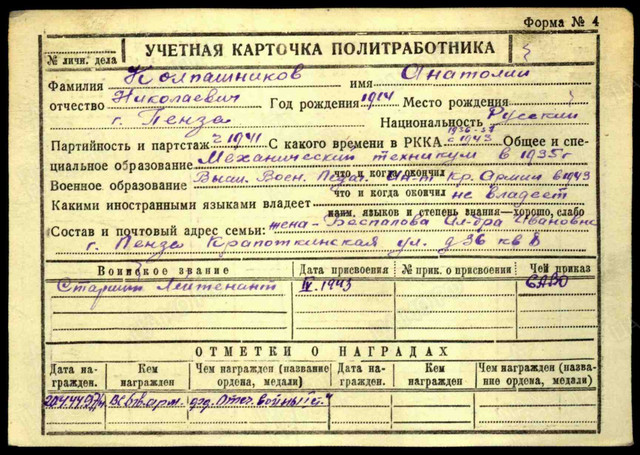 Форма № 4
№ личн. дела
УЧЕТНАЯ КАРТОЧКА ПОЛИТРАБОТНИКА
Фамилия Колпашников имя Анатолий
отчество Николаевич Год рождения 1914 Место рождения
г. Пенза Национальность Русский
Партийность и партстаж с 1941 С какого времени в РККА 1936-37 с 1943 Общее и спе-
циальное образование Механический техникум в 1935г
что и когда окончил
Военное образование Высш. Воен. Педаг. Ин-т Кр. Армии в 1943
что и когда окончил
Какими иностранными языками владеет не владеет
наим. языков и степень знания—хорошо, слабо
Состав и почтовый адрес семьи: жена - Беспалова Ивановна
г. Пенза Крапоткинская ул. д 36 кв 8
Воинское звание Дата присвоения № прик. о присвоении Чей приказ
Старший Лейтенант IV.1943 САВО
ОТМЕТКИ О НАГРАДАХ
Дата на-гражден. Кем награжден Чем награжден (название ордена, медали) Дата на-гражден. Кем награжден Чем награжден (назва-ние ордена, медали)
Отеч. войны